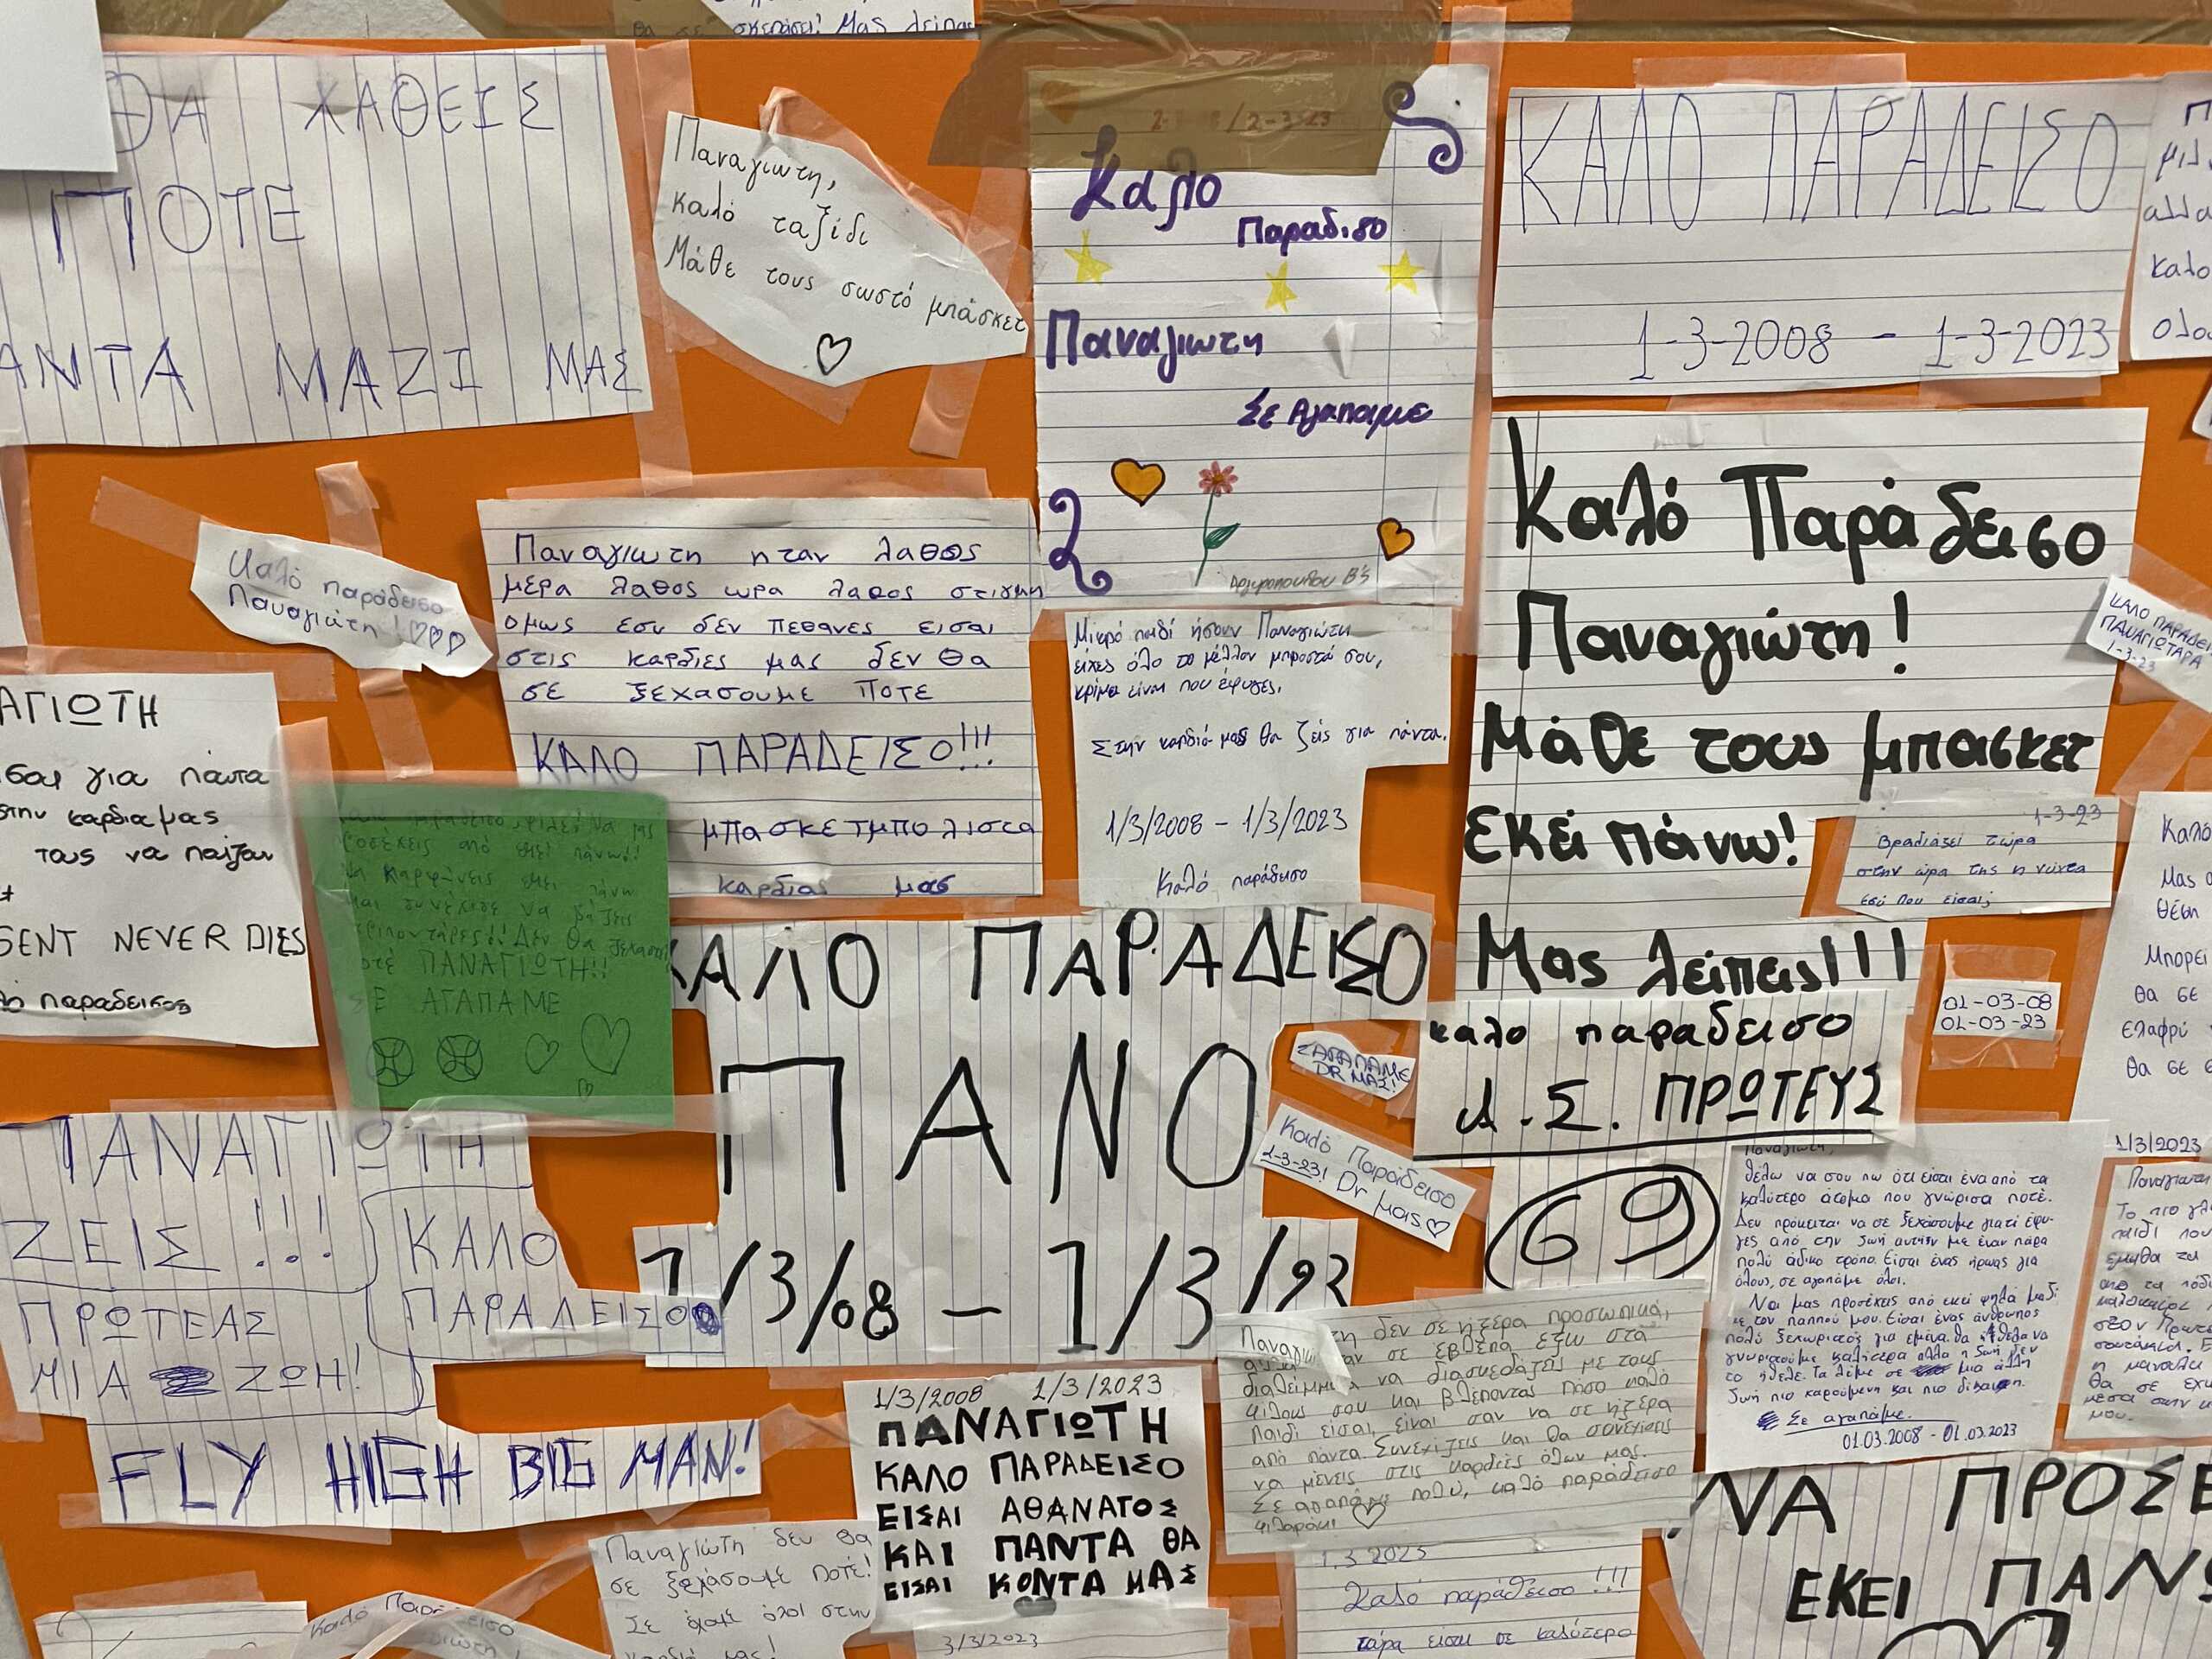 σκεπάσει! Μας λείπεις
ΘΑ ΧΑΘΕΙΣ
ΠΟΤΕ
ΑΝΤΑ ΜΑΖΙ ΜΑΣ
Παναγιώτη,
καλό ταξίδι
Μάθε τους σωστό μπάσκετ
Καλο
Παραδισο
Παναγιωτη
Σε Αγαπαμε
ΚΑΛΟ ΠΑΡΑΔΕΙΣΟ
1-3-2008 - 1-3-2023
Καλό παράδεισο
Παναγιώτη!
Παναγιωτη ηταν λαθος
μερα λαθος ωρα λαθος στιγμη
ομως εσυ δεν πεθανες εισαι
στις καρδιες μας δεν θα
σε ξεχασουμε ποτε
ΚΑΛΟ ΠΑΡΑΔΕΙΣΟ!!!
μπασκετμπολιστα
καρδιας μας
Μικρό παιδί ήσουν Παναγιώτη
είχες όλο το μέλλον μπροστά σου,
κρίμα είναι που έφυγες.
Στην καρδιά μας θα ζείς για πάντα.
1/3/2008 - 1/3/2023
Καλό παράδεισο
Καλό Παράδεισο
Παναγιώτη!
Μάθε τους μπασκετ
Εκεί πάνω!
Μας λείπεις!!!
ΚΑΛΟ ΠΑΡΑΔΕΙ
ΠΑΝΑΓΙΩΤΑΡΑ
1-3-23
1-3-23
Βραδιάζει τώρα
στην ώρα της η νύχτα
εσύ που είσαι;
ΑΓΙΩΤΗ
σαι για πάντα
στην καρδια μας
τους να παίζουν
SENT NEVER DIES
παραδεισος
ΠΑΝΑΓΙΩΤΗ!!
ΣΕ ΑΓΑΠΑΜΕ
ΚΑΛΟ ΠΑΡΑΔΕΙΣΟ
ΠΑΝΟ
1/3/08 - 1/3/23
Σ'ΑΓΑΠΑΜΕ
DR ΜΑΣ!
Καλό Παράδεισο
1-3-23! Dr μας
καλο παραδεισο
Α.Σ. ΠΡΩΤΕΥΣ
69
01-03-08
01-03-23
Καλό
Μας
θέση
Μπορεί
θα σε
ελαφρύ
θα σε
ΠΑΝΑΓΙΩΤΗ
ΖΕΙΣ !!!
ΠΡΩΤΕΑΣ
ΜΙΑ ΖΩΗ!
ΚΑΛΟ
ΠΑΡΑΔΕΙΣΟ
FLY HIGH BIG MAN!
1/3/2008 1/3/2023
ΠΑΝΑΓΙΩΤΗ
ΚΑΛΟ ΠΑΡΑΔΕΙΣΟ
ΕΙΣΑΙ ΑΘΑΝΑΤΟΣ
ΚΑΙ ΠΑΝΤΑ ΘΑ
ΕΙΣΑΙ ΚΟΝΤΑ ΜΑΣ
3/3/2023
δεν σε ήξερα προσωπικά,
σε έβλεπα έξω στα
να διασκεδάζεις με τους
φίλους σου και βλέποντας πόσο καλό
παιδί είσαι, είναι σαν να σε ήξερα
από πάντα. Συνεχίζεις και θα συνεχίσεις
να μένεις στις καρδιές όλων μας.
Σε αγαπάμε πολύ, καλό παράδεισο
φιλαράκι
Παναγιώτη,
θέλω να σου πω ότι είσαι ένα από τα
καλύτερα άτομα που γνώρισα ποτέ.
Δεν πρόκειται να σε ξεχάσουμε γιατί έφυ-
γες από την ζωή αυτήν με έναν πάρα
πολύ άδικο τρόπο. Είσαι ένας ήρωας για
όλους, σε αγαπάμε όλοι.
Να μας προσέχεις από εκεί ψηλά μαζί
με τον παππού μου. Είσαι ένας άνθρωπος
πολύ ξεχωριστός για εμένα. θα ήθελα να
γνωριστούμε καλύτερα αλλα η ζωή δεν
το ήθελε. Τα λέμε σε μια άλλη
ζωή πιο χαρούμενη και πιο δίκαιη.
Σε αγαπάμε.
01.03.2008 - 01.03.2023
1/3/2023
Παναγιωτη
Το πιο
παιδί που
εμαθα
καλοκαίρι
στον
θα σε
μεσα στην
μου.
Παναγιώτη δεν θα
σε ξεχάσουμε ποτέ!
Σε έχουμε όλοι στην
καρδιά μας!
1.3.2023
Καλό παράδεισο!!!
τώρα εισαι σε καλύτερο
ΝΑ ΠΡΟΣΕ
ΕΚΕΙ ΠΑΝΩ